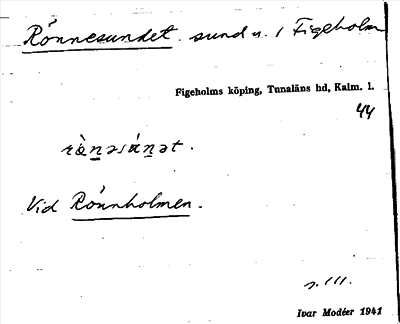 Rönnesundet. sund n. i Figeholm
Figeholms köping, Tunaläns hd, Kalm. l.
44
Vid Rönnholmen.
s. 111.
Ivar Modéer 1941